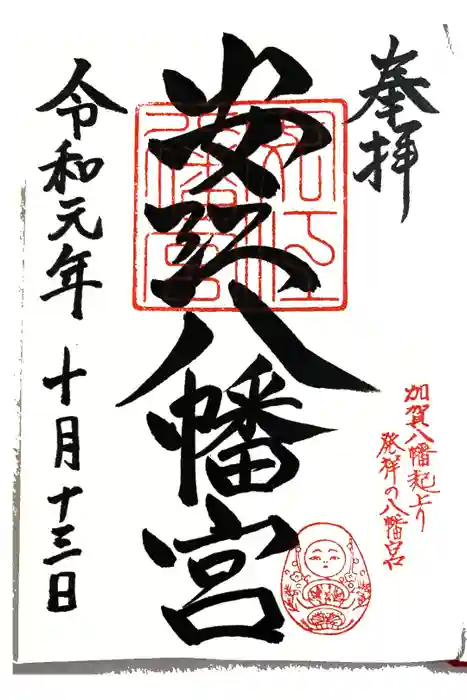 奉拝
加賀八幡起上り
発祥の八幡宮
安江八幡宮
令和元年十月十三日